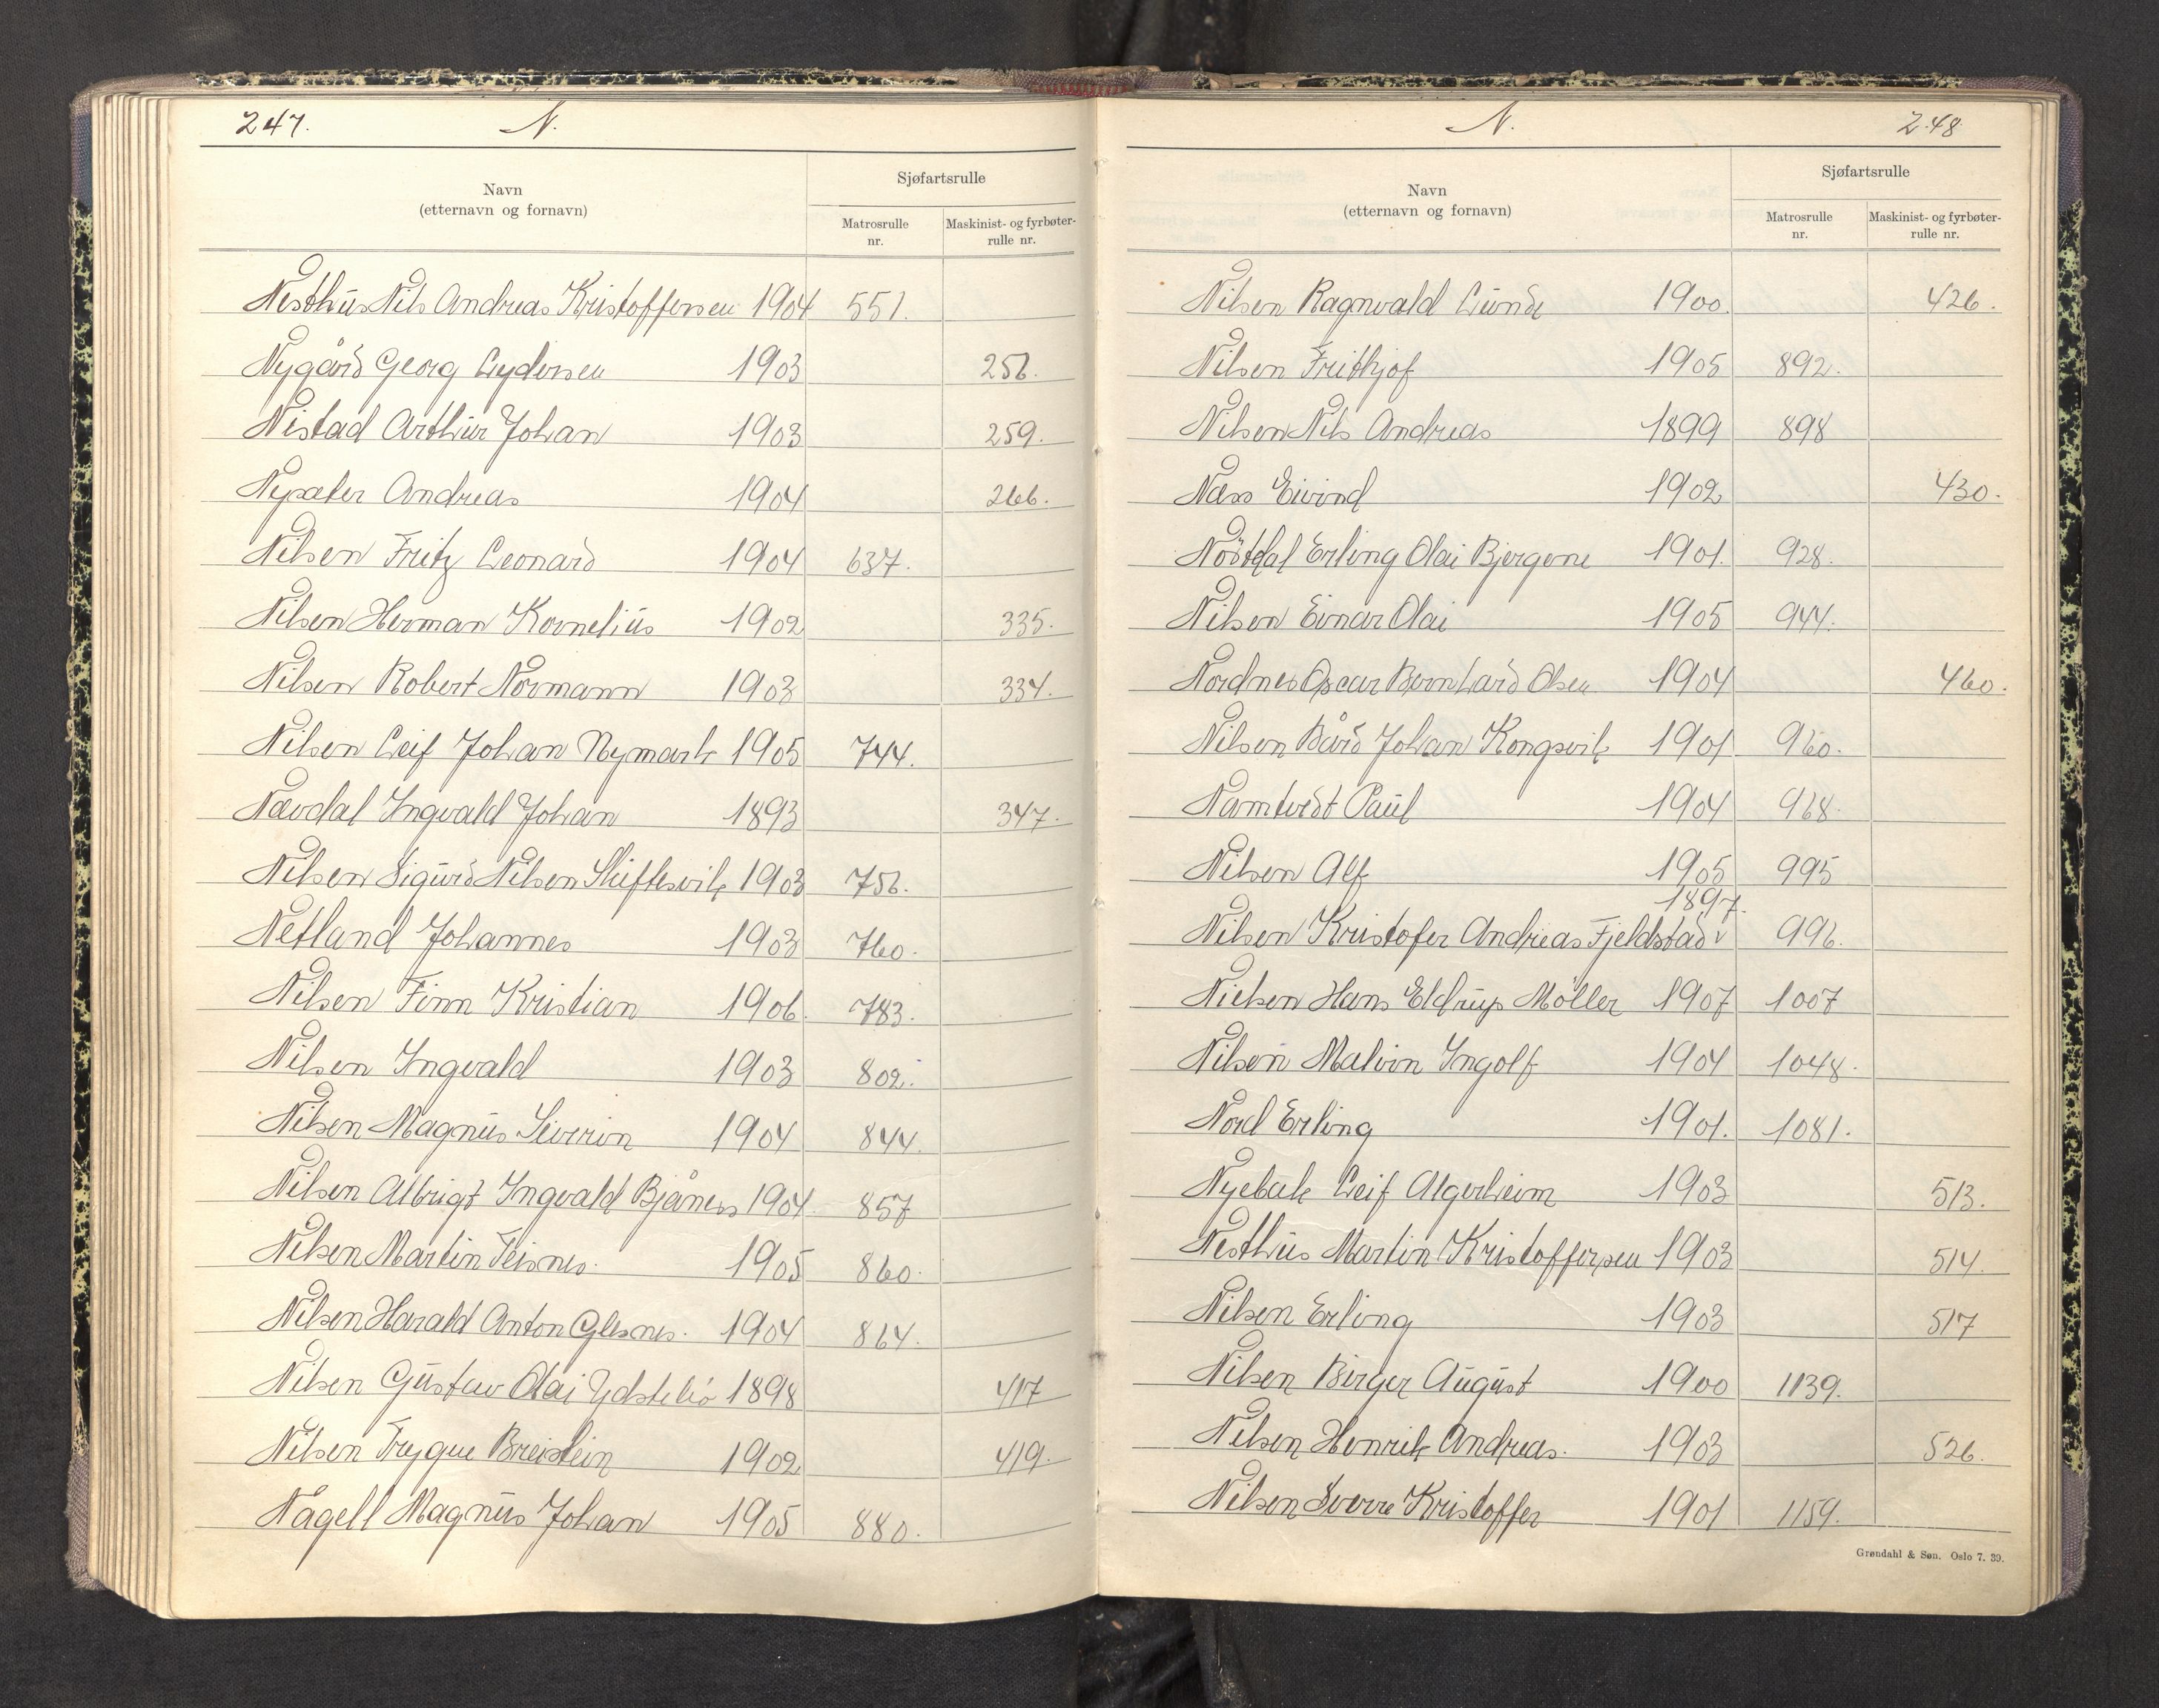 247. N.
Navn
(etternavn og fornavn)
Sjøfartsrulle
Matrosrulle nr.
Maskinist- og fyrbøter-rulle nr.
Nesthus Nils Andreas Kristoffersen 1904 551.
Nygård Georg Lydersen 1903 256.
Nistad Arthur Johan 1903 259.
Nysæter Andreas 1904 266.
Nilsen Fritz Leonard 1904 637.
Nilsen Herman Kornelius 1902 335.
Nilsen Robert Normann 1903 334.
Nilsen Leif Johan Nymark 1905 744.
Nævdal Ingvald Johan 1893 347.
Nilsen Sigurd Nilsen Skiftesvik 1903 756.
Netland Johannes 1903 760.
Nilsen Finn Kristian 1906. 783.
Nilsen Ingvald 1903 802.
Nilsen Magnus Severin 1904 844.
Nilsen Albrigt Ingvald Bjånes 1904. 857
Nilsen Martin Teisnes. 1905 860.
Nilsen Harald Anton Glesnes. 1904 864.
Nilsen Gustav Olai 1898 417
Nilsen Trygve Breistein 1902 419.
Nagell Magnus Johan 1905 880.
N. 248
Navn
(etternavn og fornavn)
Sjøfartsrulle
Matrosrulle nr.
Maskinist- og fyrbøter-rulle nr.
Nilsen Ragnvald Lunde 1900. 426.
Nilsen Frithjof 1905 892.
Nilsen Nils Andreas 1899 898
Næss Eivind 1902 430.
Nöstdal Erling Olai Bjergene 1901. 928.
Nilsen Einar Olai 1905 944.
Nordnes Oscar Bernhard Olsen 1904 460.
Nilsen Bård Johan Kongsvik 1901 960.
Namtvedt Paul 1904 968.
Nilsen Alf 1905 995
1897.
Nilsen Kristofer Andreas Fjeldstad v 996.
Nielsen Hans Eldrup Möller 1907 1007
Nilsen Malvin Ingolf 1904 1048.
Nord Erling 1901. 1081.
Nyebak Leif Algerheim 1903 513.
Nesthus Martin Kristoffersen 1903 514.
Nilsen Erling 1903 517
Nilsen Birger August 1900 1139.
Nilsen Henrik Andreas. 1903 526.
Nilsen Sverre Kristoffer 1901 1159.
Grøndahl & Søn. Oslo 7. 39.